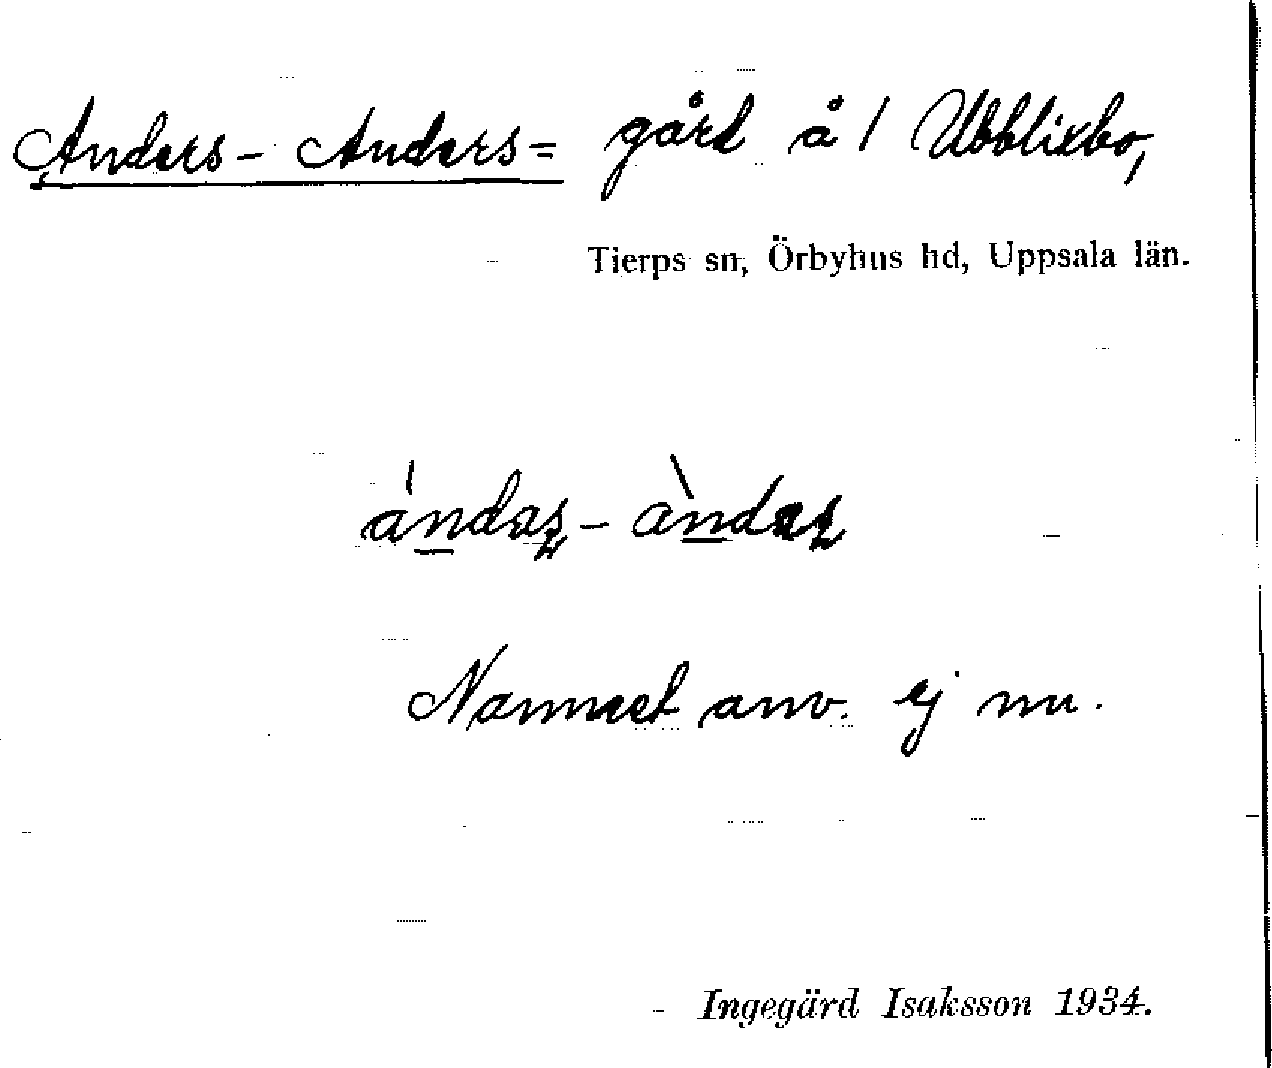 Anders-Anders= gård å/ Ubblixbo,
Tierps sn, Örbyhus hd, Uppsala län.
Namnet anv. ej nu.
Ingegärd Isaksson 1934.